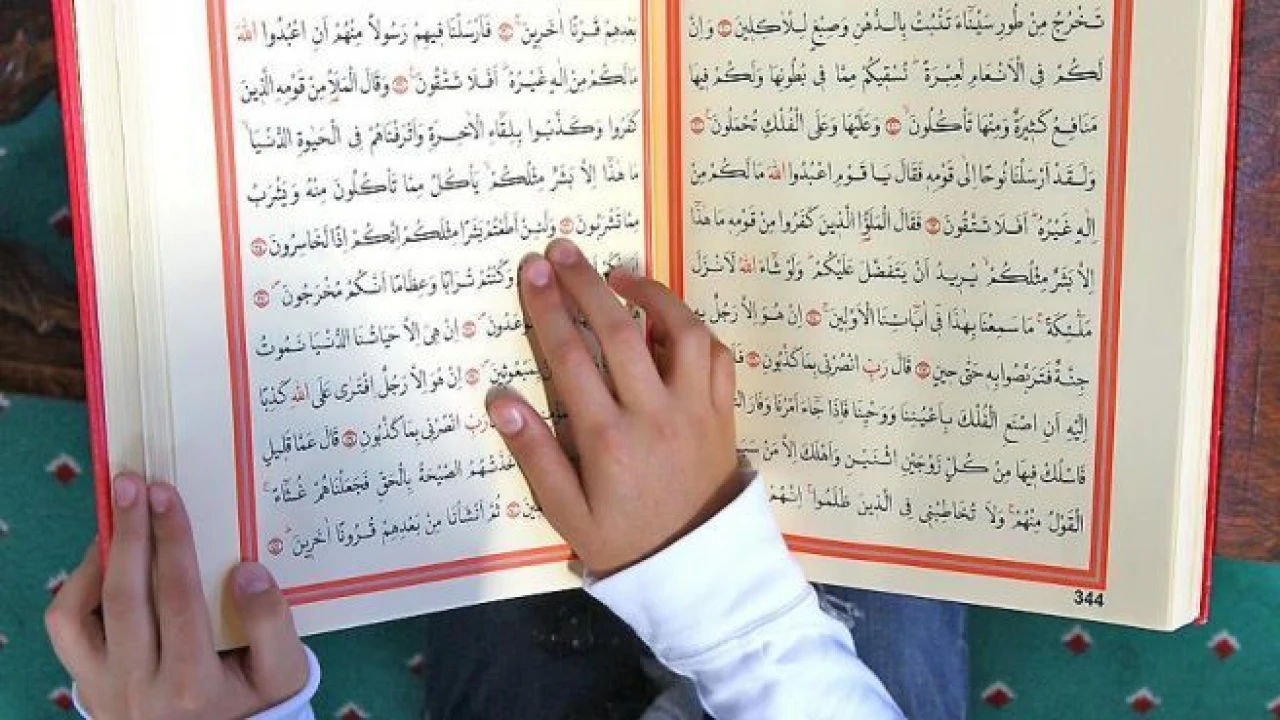 تَخْرُجُ مِنْ طُورِ سَيْنَٓاءَ تَنْبُتُ بِالدُّهْنِ وَصِبْغٍ لِلْاٰكِلٖينَ وَاِنَّ
لَكُمْ فِى الْاَنْعَامِ لَعِبْرَةً نُسْقٖيكُمْ مِمَّا فٖى بُطُونِهَا وَلَكُمْ فٖيهَا
مَنَافِعُ كَثٖيرَةٌ وَمِنْهَا تَأْكُلُونَ وَعَلَيْهَا وَعَلَى الْفُلْكِ تُحْمَلُونَ
وَلَقَدْ اَرْسَلْنَا نُوحًا اِلٰى قَوْمِهٖ فَقَالَ يَا قَوْمِ اعْبُدُوا اللّٰهَ مَا لَكُمْ مِنْ
اِلٰهٍ غَيْرُهُ اَفَلَا تَتَّقُونَ فَقَالَ الْمَلَؤُا الَّذٖينَ كَفَرُوا مِنْ قَوْمِهٖ مَا هٰذَٓا
اِلَّا بَشَرٌ مِثْلُكُمْ يُرٖيدُ اَنْ يَتَفَضَّلَ عَلَيْكُمْ وَلَوْ شَٓاءَ اللّٰهُ لَاَنْزَلَ
مَلٰٓئِكَةً مَا سَمِعْنَا بِهٰذَا فٖٓى اٰبَٓائِنَا الْاَوَّلٖينَ اِنْ هُوَ اِلَّا رَجُلٌ بِهٖ
جِنَّةٌ فَتَرَبَّصُوا بِهٖ حَتّٰى حٖينٍ قَالَ رَبِّ انْصُرْنٖى بِمَا كَذَّبُونِ
اِلَيْهِ اَنِ اصْنَعِ الْفُلْكَ بِاَعْيُنِنَا وَوَحْيِنَا فَاِذَا جَٓاءَ اَمْرُنَا وَفَارَ
فَاسْلُكْ فٖيهَا مِنْ كُلٍّ زَوْجَيْنِ اثْنَيْنِ وَاَهْلَكَ اِلَّا مَنْ
الْقَوْلُ مِنْهُمْ وَلَا تُخَاطِبْنٖى فِى الَّذٖينَ ظَلَمُوا اِنَّهُمْ
344
بَعْدِهِمْ قَرْنًا اٰخَرٖينَ فَاَرْسَلْنَا فٖيهِمْ رَسُولًا مِنْهُمْ اَنِ اعْبُدُوا اللّٰهَ
مَا لَكُمْ مِنْ اِلٰهٍ غَيْرُهُ اَفَلَا تَتَّقُونَ وَقَالَ الْمَلَاُ مِنْ قَوْمِهِ الَّذٖينَ
كَفَرُوا وَكَذَّبُوا بِلِقَٓاءِ الْاٰخِرَةِ وَاَتْرَفْنَاهُمْ فِى الْحَيٰوةِ الدُّنْيَا
مَا هٰذَٓا اِلَّا بَشَرٌ مِثْلُكُمْ يَأْكُلُ مِمَّا تَأْكُلُونَ مِنْهُ وَيَشْرَبُ
مِمَّا تَشْرَبُونَ وَلَئِنْ اَطَعْتُمْ بَشَرًا مِثْلَكُمْ اِنَّكُمْ اِذًا لَخَاسِرُونَ
وَكُنْتُمْ تُرَابًا وَعِظَامًا اَنَّكُمْ مُخْرَجُونَ
تُوعَدُونَ اِنْ هِىَ اِلَّا حَيَاتُنَا الدُّنْيَا نَمُوتُ
بِمَبْعُوثٖينَ اِنْ هُوَ اِلَّا رَجُلٌ افْتَرٰى عَلَى اللّٰهِ كَذِبًا
رَبِّ انْصُرْنٖى بِمَا كَذَّبُونِ قَالَ عَمَّا قَلٖيلٍ
فَاَخَذَتْهُمُ الصَّيْحَةُ بِالْحَقِّ فَجَعَلْنَاهُمْ غُثَٓاءً
ثُمَّ اَنْشَأْنَا مِنْ بَعْدِهِمْ قُرُونًا اٰخَرٖينَ